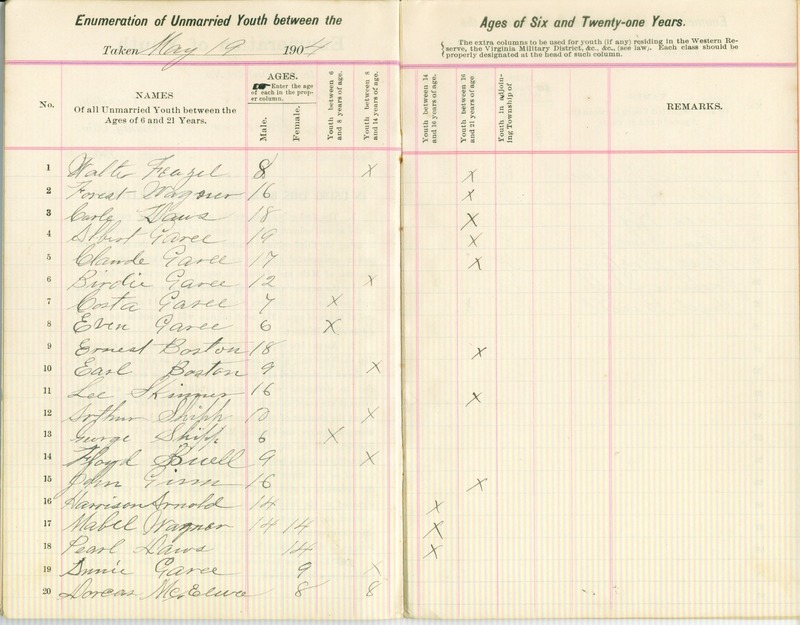 Enumeration of Unmarried Youth between the Ages of Six and Twenty-one Years.
Taken May 19 1904
The extra columns to be used for youth (if any) residing in the Western Re-
serve, the Virginia Military District, &c., &c., (see law). Each class should be
properly designated at the head of such column.
No.
NAMES
Of all Unmarried Youth between the
Ages of 6 and 21 Years.
AGES.
Enter the age
of each in the prop-
er column.
Male.
Female.
Youth between 6
and 8 years of age.
Youth between 8
and 14 years of age.
Youth between 14
and 16 years of age.
Youth between 16
and 21 years of age
Youth in adjoin-
ing Township of
REMARKS.
1 Walter 8 X X
2 Forest Wagner 16 X
3 Carl Daws 18 X
4 Albert Garee 19 X
5 Claude Garee 17 X
6 Birdie Garee 12 X
7 Costa Garee 7 X
8 Even Garee 6 X
9 Ernest Boston 18 X
10 Earl Boston 9 X
11 Lee Skinner 16 X
12 Arthur Shipp 10 X
13 George Shipp 6 X
14 Floyd Buell 9 X
15 John Ginn 16 X
16 Harrison Arnold 14 X
17 Mabel Wagner 14 14 X
18 Pearl Daws 14 X
19 Annie Garee 9 X
20 Dorcas 8 8